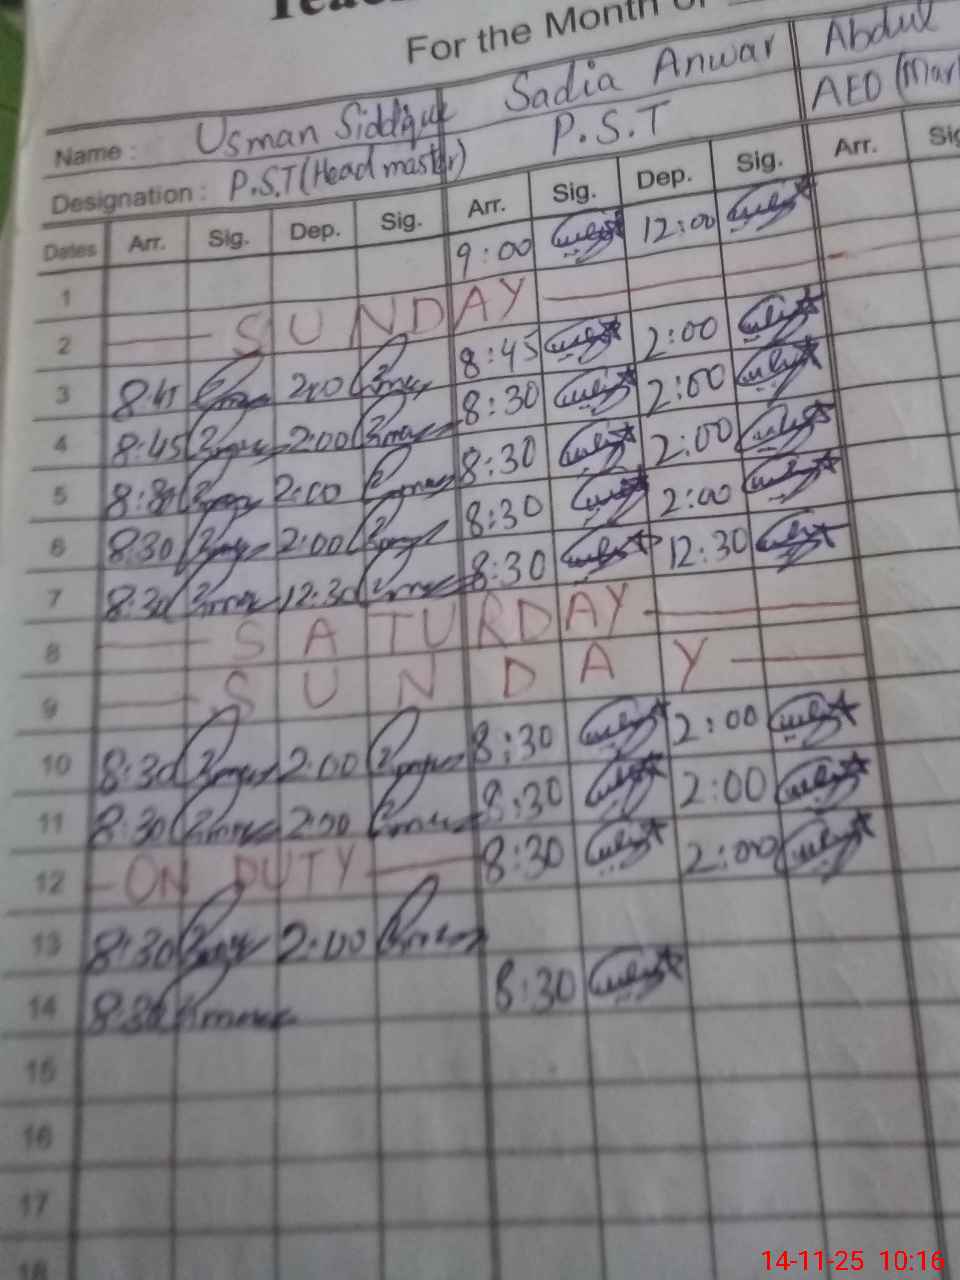 For the Month of
Name : Usman Siddique Sadia Anwar Abdul
Designation : P.S.T (Head master) P.S.T AEO
Dates Arr. Sig. Dep. Sig. Arr. Sig. Dep. Sig. Arr.
1 9:00 12:00
2 SUNDAY
3 2:00 8:45 2:00
4 8:45 2:00 8:30 2:00
5 8:30 2:00 8:30 2:00
6 8:30 2:00 8:30 2:00
7 8:30 12:30 8:30 12:30
8 SATURDAY
9 SUNDAY
10 8:30 2:00 8:30 2:00
11 8:30 2:00 8:30 2:00
12 ON DUTY 8:30 2:00
13 8:30 2:00
14 8:30 8:30
15
16
17
18
14-11-25 10:16